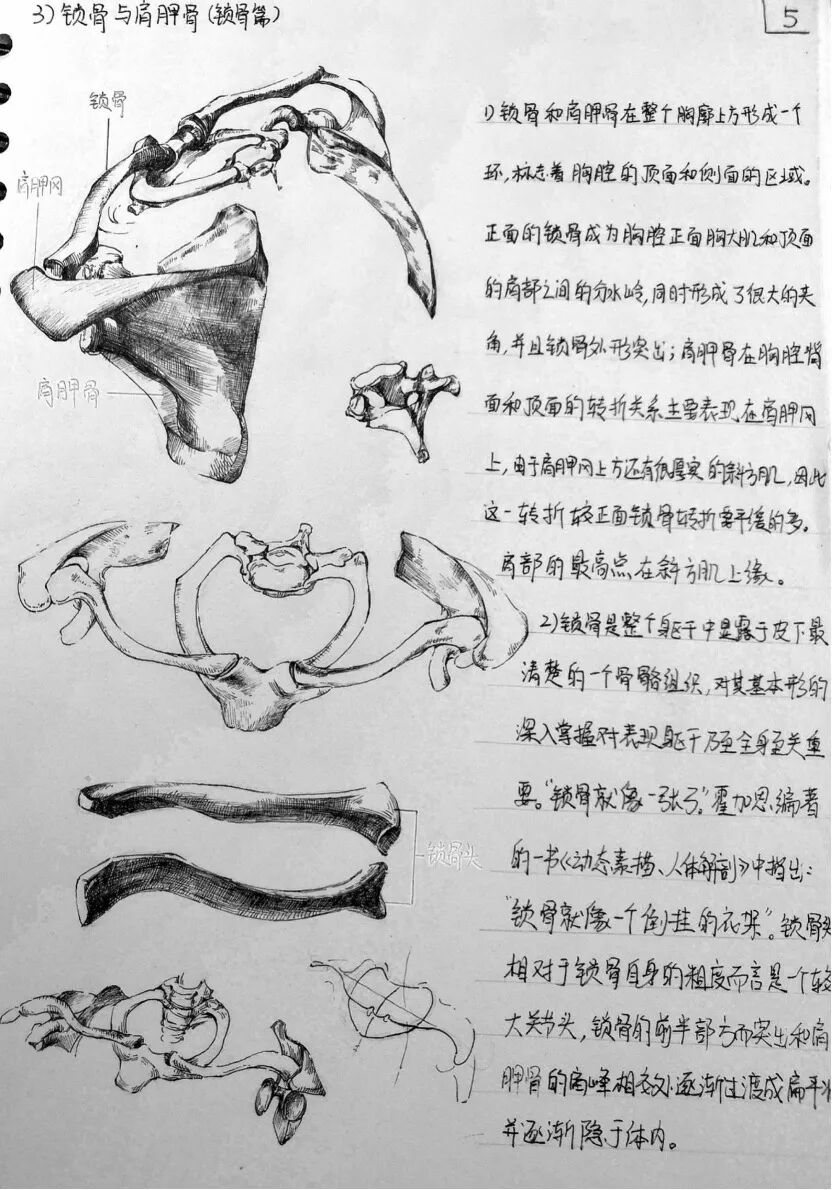 3) 锁骨与肩胛骨(锁骨篇)
5
锁骨
肩胛冈
肩胛骨
锁骨头
1) 锁骨和肩胛骨在整个胸廓上方形成一个
环,标志着胸腔的顶面和侧面的区域。
正面的锁骨成为胸腔正面胸大肌和顶面
的肩部之间的分水岭,同时形成了很大的夹
角,并且锁骨外形突出;肩胛骨在胸腔背
面和顶面的转折关系主要表现在肩胛冈
上,由于肩胛冈上方还有很厚实的斜方肌,因此
这一转折较正面锁骨转折要平缓的多。
肩部的最高点在斜方肌上缘。
2)锁骨是整个躯干中显露于皮下最
清楚的一个骨骼组织,对其基本形的
深入掌握对表现躯干乃至全身至关重
要。“锁骨就像一张弓。”霍加思编著
的一书《动态素描、人体解剖》中指出:
“锁骨就像一个倒挂的衣架”。锁骨头
相对于锁骨自身的粗度而言是一个较
大关节头,锁骨的前半部方而突出和肩
胛骨的肩峰相交处逐渐过渡成扁平状
并逐渐隐于体内。